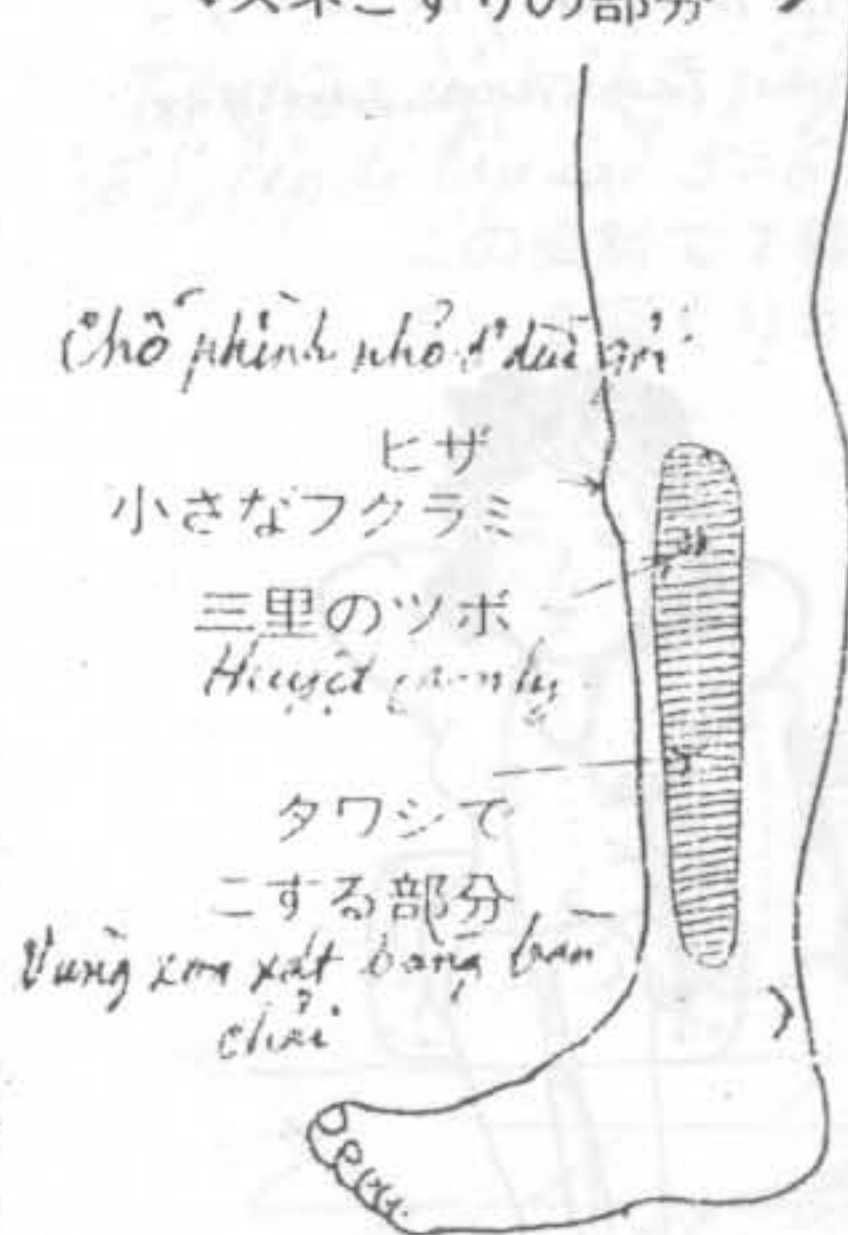 スネこすりの部分
Chỗ phình nhỏ ở đầu gối
ヒザ
小さなフクラミ
三里のツボ
Huyệt
タワシで
こする部分
Vùng xoa xát bằng bàn
chải